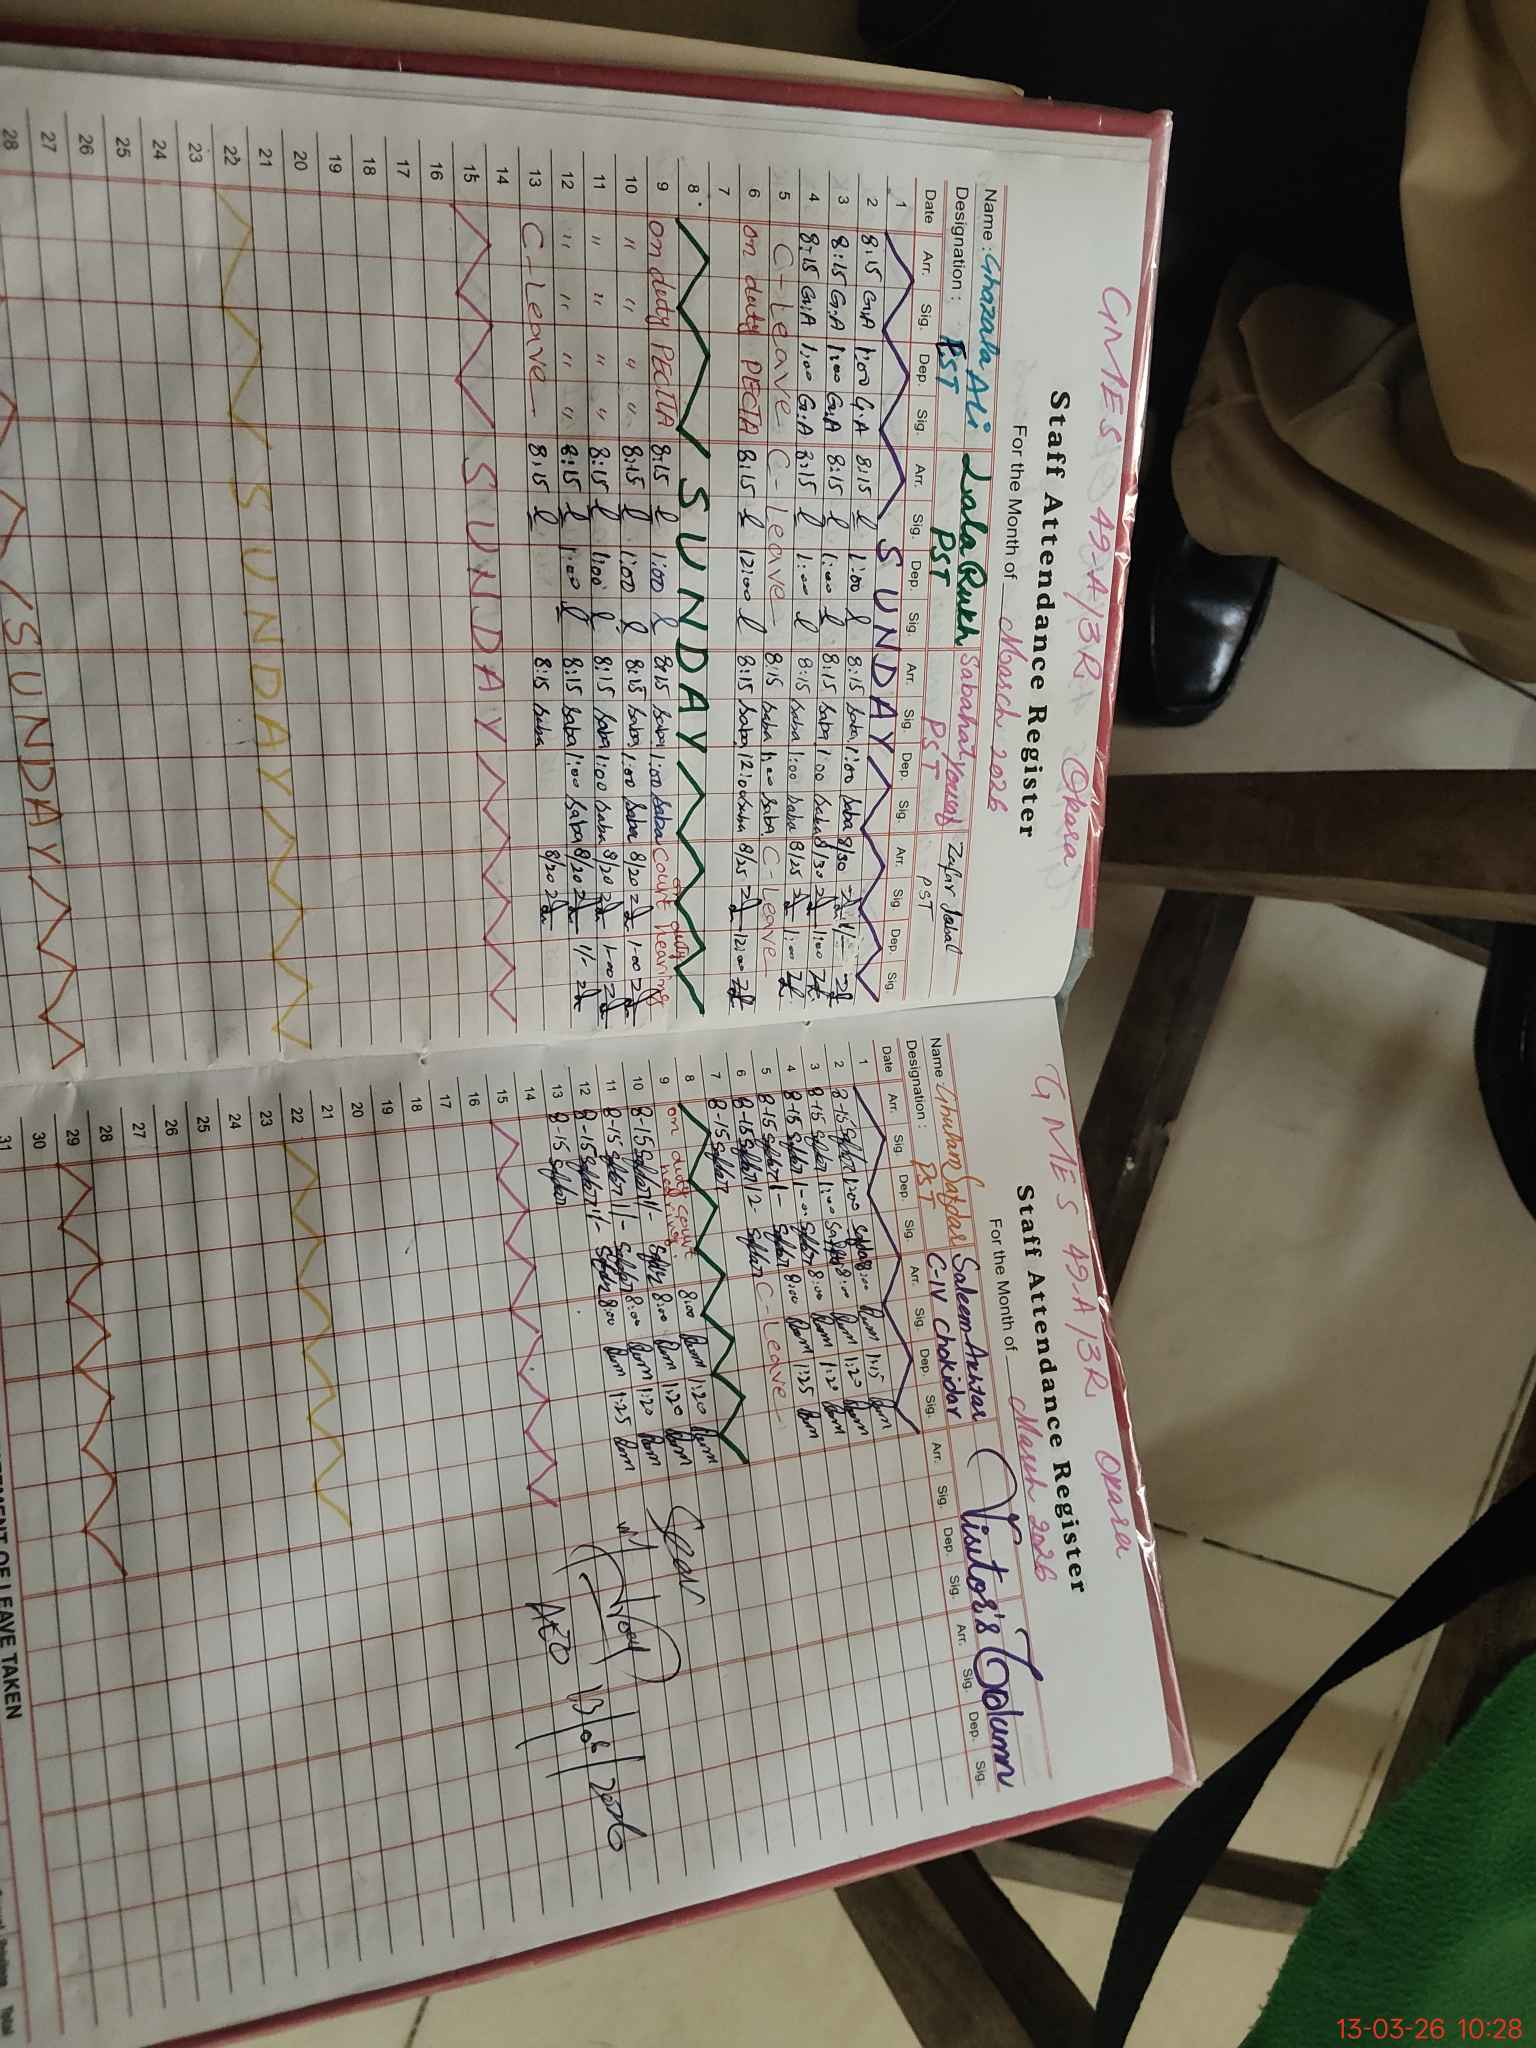 GMES 49-A/3R. Okara
Staff Attendance Register
For the Month of March 2026
Name : Ghazala Ali Lala Rukh Sabahat Yousaf Zafar Iqbal
Designation : EST PST PST PST
Date Arr. Sig. Dep. Sig. Arr. Sig. Dep. Sig. Arr. Sig. Dep. Sig. Arr. Sig. Dep. Sig.
1 SUNDAY
2 8:15 G.A 1:00 G.A 8:15 1:00 8:15 Saba 1:00 Saba 8/30 1/-
3 8:15 G.A 1:00 G.A 8:15 1:00 8:15 Saba 1:00 Saba 8/30 1:00
4 8:15 G.A 1:00 G.A 8:15 1:00 8:15 Saba 1:00 Saba 8/25 1:00
5 C-Leave C-Leave 8:15 Saba 1:00 Saba C-Leave
6 on duty PECTA 8:15 12:00 8:15 Saba 12:00 Saba 8/25 12:00
7
8 SUNDAY
9 on duty PECTA 8:15 1:00 8:15 Saba 1:00 Saba on duty Court hearing
10 " " " " 8:15 1:00 8:15 Saba 1:00 Saba 8/20 1-00
11 " " " " 8:15 1:00 8:15 Saba 1:00 Saba 8/20 1-00
12 " " " " 8:15 1:00 8:15 Saba 1:00 Saba 8/20 1/-
13 C-Leave 8:15 8:15 Saba 8/20
14
15 SUNDAY
16
17
18
19
20
21
22 SUNDAY
23
24
25
26
27
28
SUNDAY
GMES 49-A/3R. Okara
Staff Attendance Register
For the Month of March 2026
Name : Ghulam Safdar Saleem Akhtar Visitor's Column
Designation : PST C-IV Chokidar
Date Arr. Sig. Dep. Sig. Arr. Sig. Dep. Sig. Arr. Sig. Dep. Sig. Arr. Sig. Dep. Sig.
1
2 8-15 Safdar 1:00 Safdar 8:00 1:15
3 8-15 Safdar 1:00 Safdar 8:00 1:20
4 8-15 Safdar 1-00 Safdar 8:00 1:20
5 8-15 Safdar 1- Safdar 8:00 1:25
6 8-15 Safdar 12- Safdar C-Leave
7 8-15 Safdar
8
9 on duty court hearing. 8:00 1:20
10 8-15 Safdar 1/- 8:00 1:20
11 8-15 Safdar 1/- Safdar 8:00 1:20
12 8-15 Safdar 1/- Safdar 8:00 1:25
13 8-15 Safdar
14
15
16
17
18
19
20
21
22
23
24
25
26
27
28
29
30
31
AEO
OF LEAVE TAKEN
Total
13-03-26 10:28